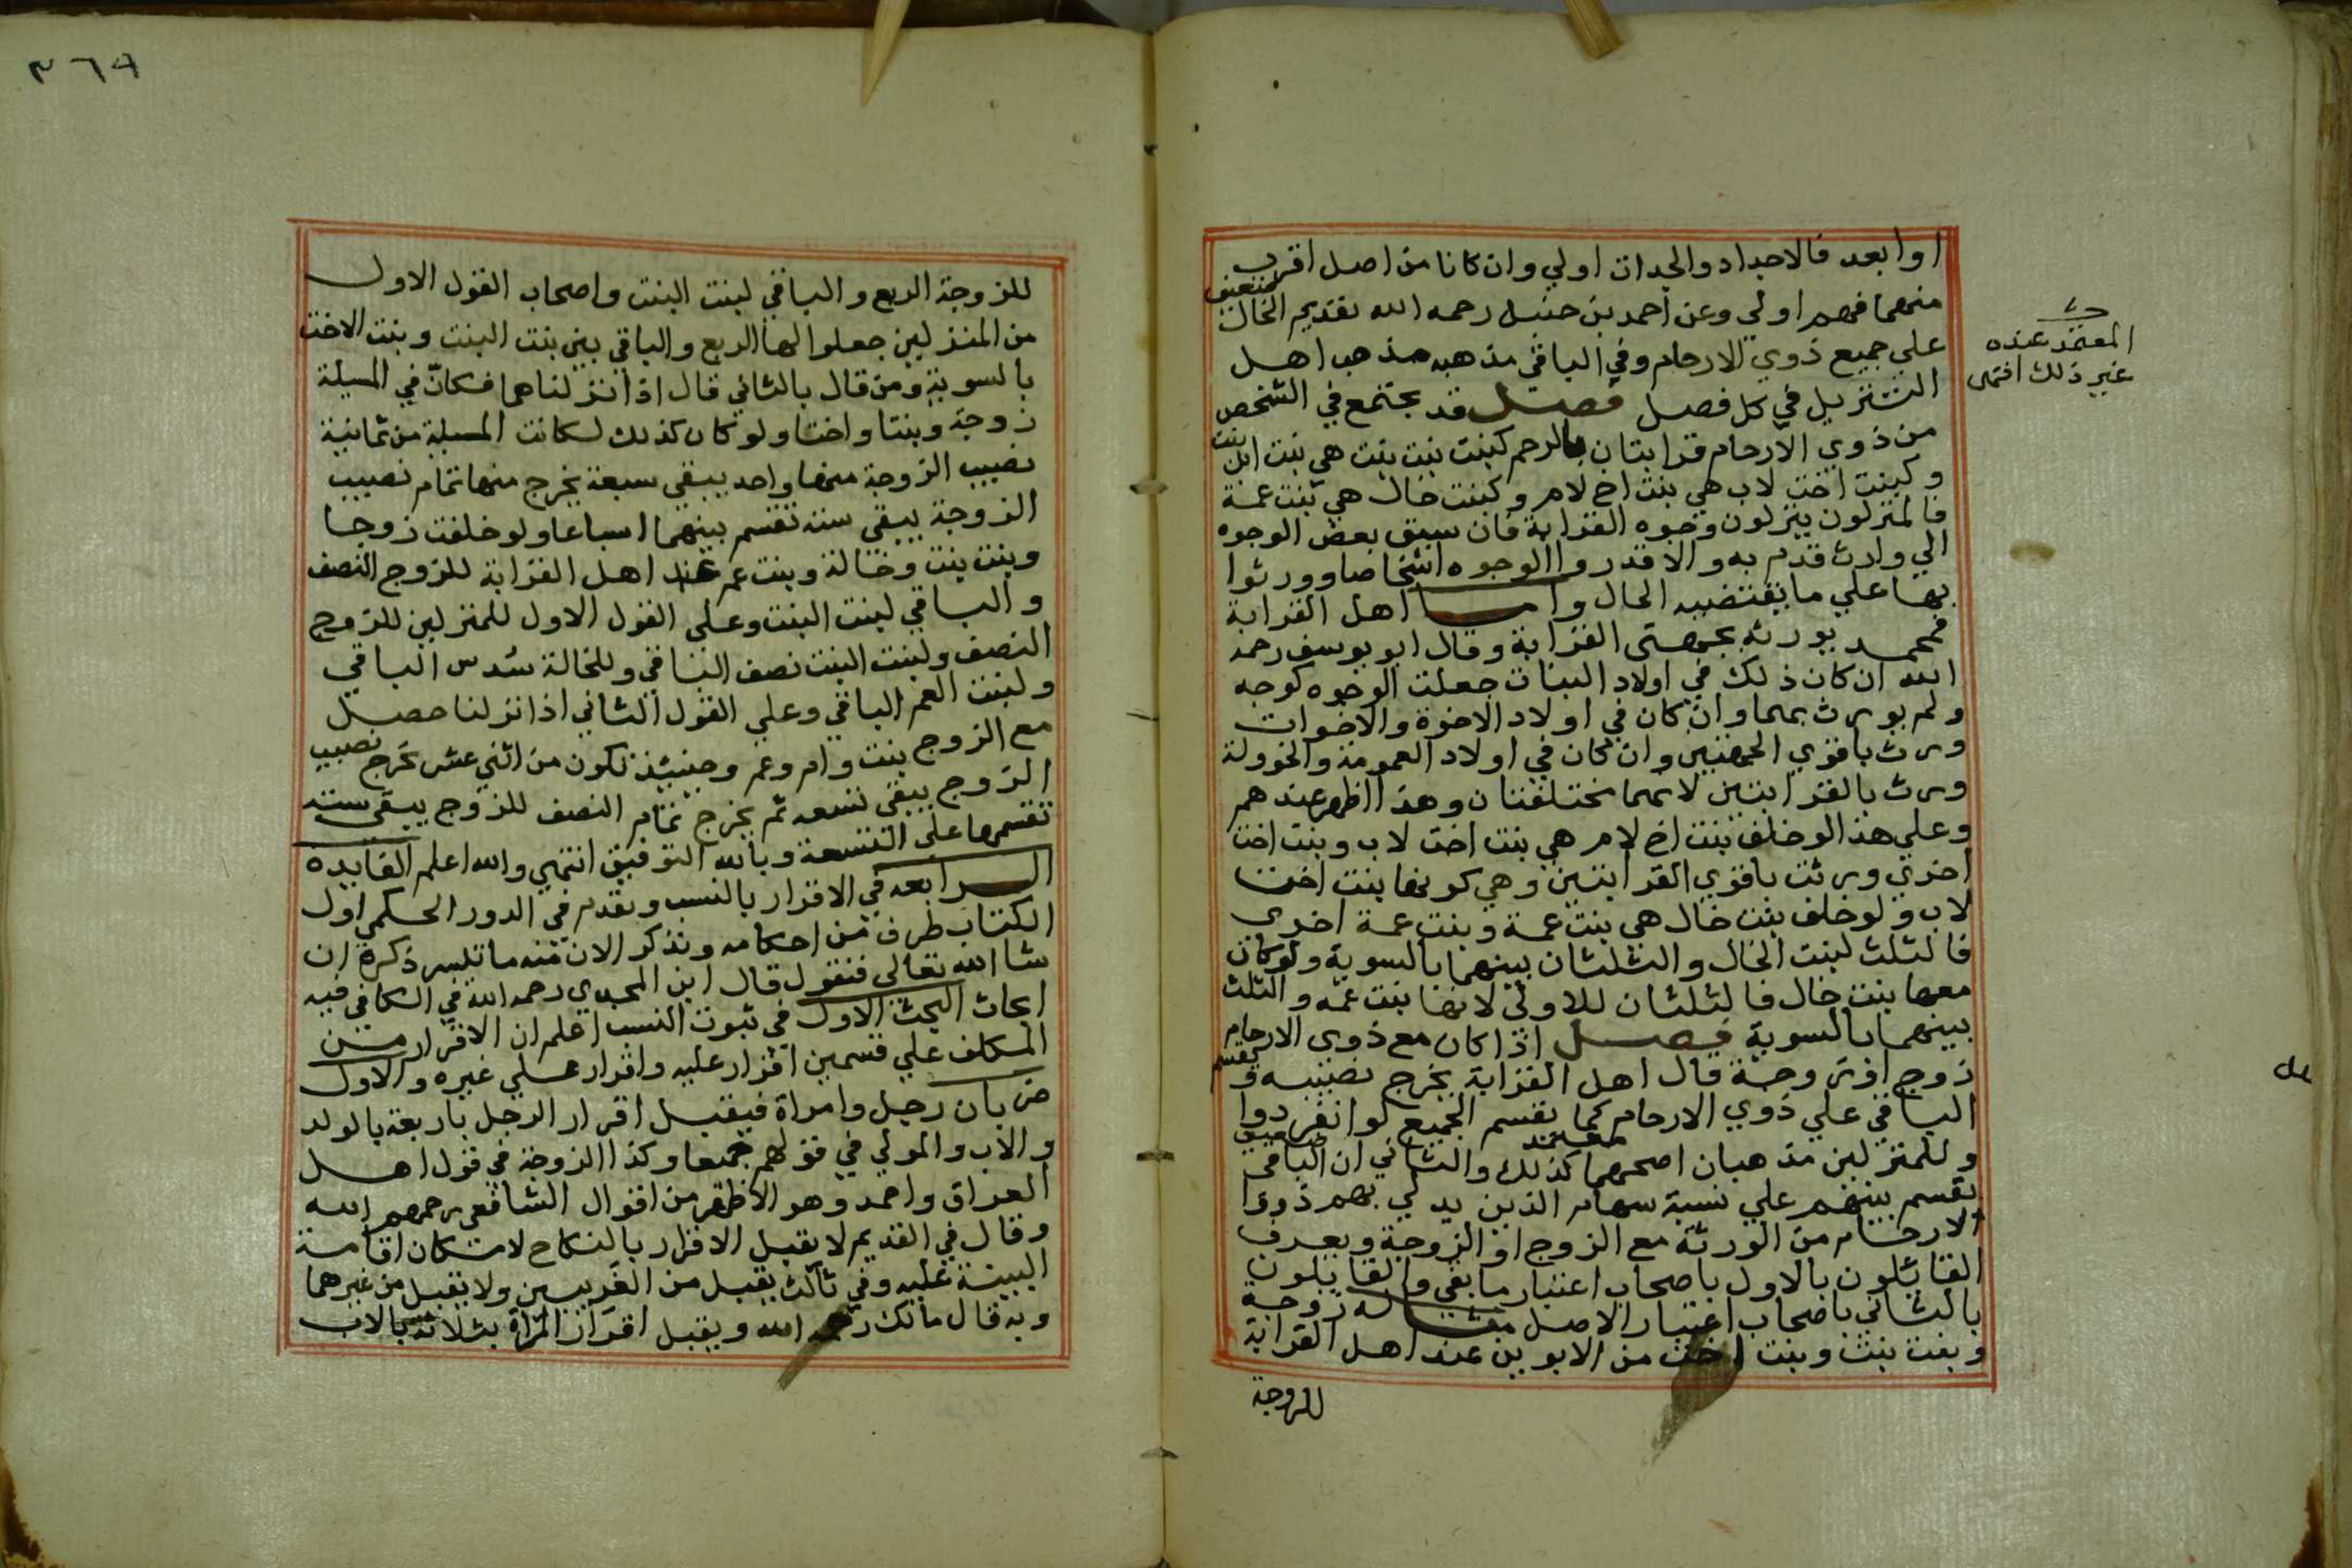 او ابعد فالاجداد والجدات اولي وان كانا من اصل اقرب
منهما فهم اولي وعن احمد بن حنبل رحمه الله تقديم الخال
ضعيف
علي جميع ذوي الارحام وفي الباقي مذهبه مذهب اهل
المعتمد عنده
غير ذلك انتهى
التنزيل في كل فصل فصل قد يجتمع في الشخص
من ذوي الارحام قرابتان بالرحم كبنت بنت بنت هي بنت ابن بنت
وكبنت اخت لاب هي بنت اخ لام وكبنت خال هي بنت عمة
فالمنزلون ينزلون وجوه القرابة فان سبق بعض الوجوه
الي وارث قدم به والا قدروا الوجوه اشخاصا وورثوا
بها علي ما يقتضيه الحال واما اهل القرابة
فمحمد يورثه بجهتي القرابة وقال ابو يوسف رحمه
الله ان كان ذلك في اولاد البنات جعلت الوجوه كوجه
ولم يورث بهما وان كان في اولاد الاخوة والاخوات
ورث باقوي الجهتين وان كان في اولاد العمومة والخوولة
ورث بالقرابتين لانهما مختلفتان وهذا اظهر عندهم
وعلي هذا لو خلف بنت اخ لام هي بنت اخت لاب وبنت اخت
اخري ورثت باقوي القرابتين وهي كونها بنت اخت
لاب ولو خلف بنت خال هي بنت عمة وبنت عمة اخري
فالثلث لبنت الخال والثلثان بينهما بالسوية ولو كان
معها بنت خال فالثلثان للاولي لانها بنت عمه والثلث
بينهما بالسوية فصل اذا كان مع ذوي الارحام
زوج او زوجة قال اهل القرابة يخرج نصيبه ويقسم
الباقي علي ذوي الارحام كما يقسم الجميع لو انفردوا
وللمنزلين مذهبان اصحهما كذلك والثاني ان الباقي
معتمد
ضعيف
يقسم بينهم علي نسبة سهام الذين يدلي بهم ذووا
الارحام من الورثة مع الزوج او الزوجة ويعرف
القائلون بالاول باصحاب اعتبار ما بقي والقايلون
بالثاني باصحاب اعتبار الاصل مثاله زوجة
وبنت بنت وبنت اخت من الابوين عند اهل القرابة
للزوجة
٣٦٩
للزوجة الربع والباقي لبنت البنت واصحاب القول الاول
من المنزلين جعلوا لها الربع والباقي بين بنت البنت وبنت الاخت
بالسوية ومن قال بالثاني قال اذا نزلناهما فكان في المسيلة
زوجة وبنتا واختا ولو كان كذلك لكانت المسيلة من ثمانية
نصيب الزوجة منها واحد يبقي سبعة يخرج منها تمام نصيب
الزوجة يبقي ستة تقسم بينهما اسباعا ولو خلفت زوجا
وبنت بنت وخالة وبنت عم عند اهل القرابة للزوج النصف
والباقي لبنت البنت وعلي القول الاول للمنزلين للزوج
النصف ولبنت البنت نصف الباقي وللخالة سدس الباقي
ولبنت العم الباقي وعلي القول الثاني اذا نزلنا حصل
مع الزوج بنت وام وعم وحينئذ تكون من اثني عشر يخرج نصيب
الزوج يبقي تسعه ثم يخرج تمام النصف للزوج يبقي سته
تقسمها علي التسعة وبالله التوفيق انتهي والله اعلم الفايدة
الرابعه في الاقرار بالنسب وتقدم في الدور الحكمي اول
الكتاب طرف من احكامه ونذكر الان منه ما تيسر ذكره ان
شا الله تعالي فنقول قال ابن المجدي رحمه الله في الكافي فيه
ابحاث البحث الاول في ثبوت النسب اعلم ان الاقرار من
المكلف علي قسمين اقرار عليه واقرار علي غيره والاول
ضربان رجل وامراة فيقبل اقرار الرجل باربعة بالولد
والاب والمولي في قولهم جميعا وكذا الزوجة في قول اهل
العراق واحمد وهو الاظهر من اقوال الشافعي رحمهم الله
وقال في القديم لا يقبل الاقرار بالنكاح لامكان اقامة
البينة عليه وفي ثالث يقبل من الغريبين ولا يقبل من غيرهما
وبه قال مالك رحمه الله ويقبل اقرار المراة بثلاثة بالاب